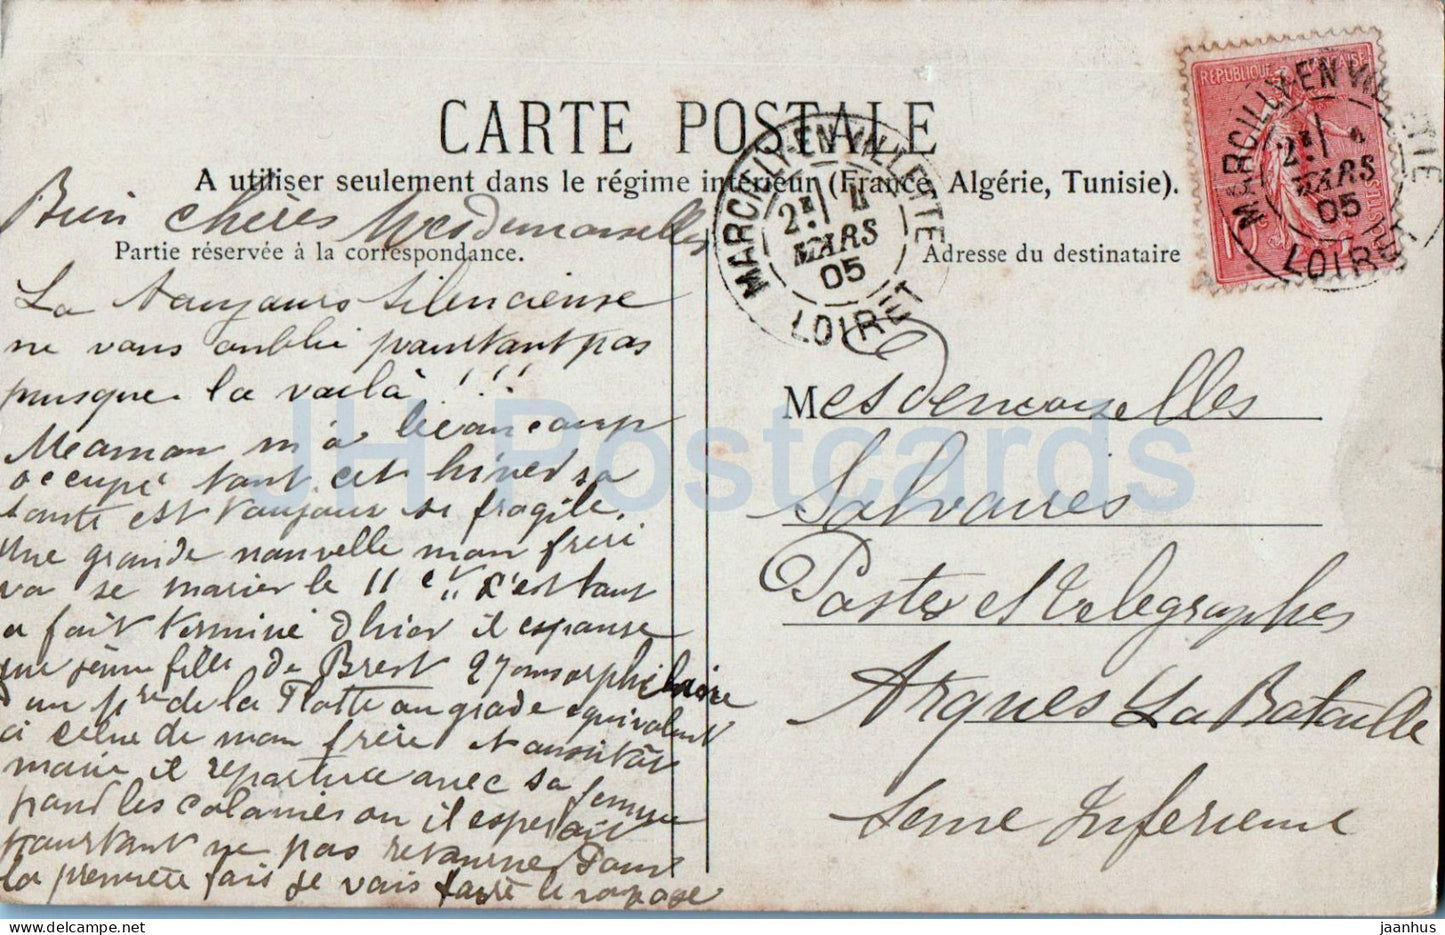 CARTE POSTALE
A utiliser seulement dans le régime intérieur (France, Algérie, Tunisie).
Bien chères Mesdemoiselles
Partie réservée à la correspondance.
Adresse du destinataire
La toujours silencieuse
ne vous oublie pourtant pas
puisque la voilà !!!
Meaman m'a beaucoup
occupé tout cet hiver sa
santé est toujours si fragile.
Une grande nouvelle mon frère
va se marier le 11 ct c'est tout
a fait terminé d'hier il espouse
une jeune fille de Brest 27 ans orpheline
d'un 1er de la Flotte au grade equivalent
a celui de mon frère et aussitôt
marié il repartira avec sa femme
pour les colonies ou il esperait
pourtant ne pas retourner Pour
la première fois je vais faire le voyage
REPUBLIQUE FRANÇAISE
POSTES
MARCILLY-EN-VILLETTE
2E 4
MARS
05
LOIRET
MARCILLY-EN-VILLETTE
2E
MARS
05
LOIRET
Mesdemoiselles
Salvaires
Postes et telegraphes
Arques La Bataille
Seine Inferieure
JH Postcards
delcampe.net
jaanhus